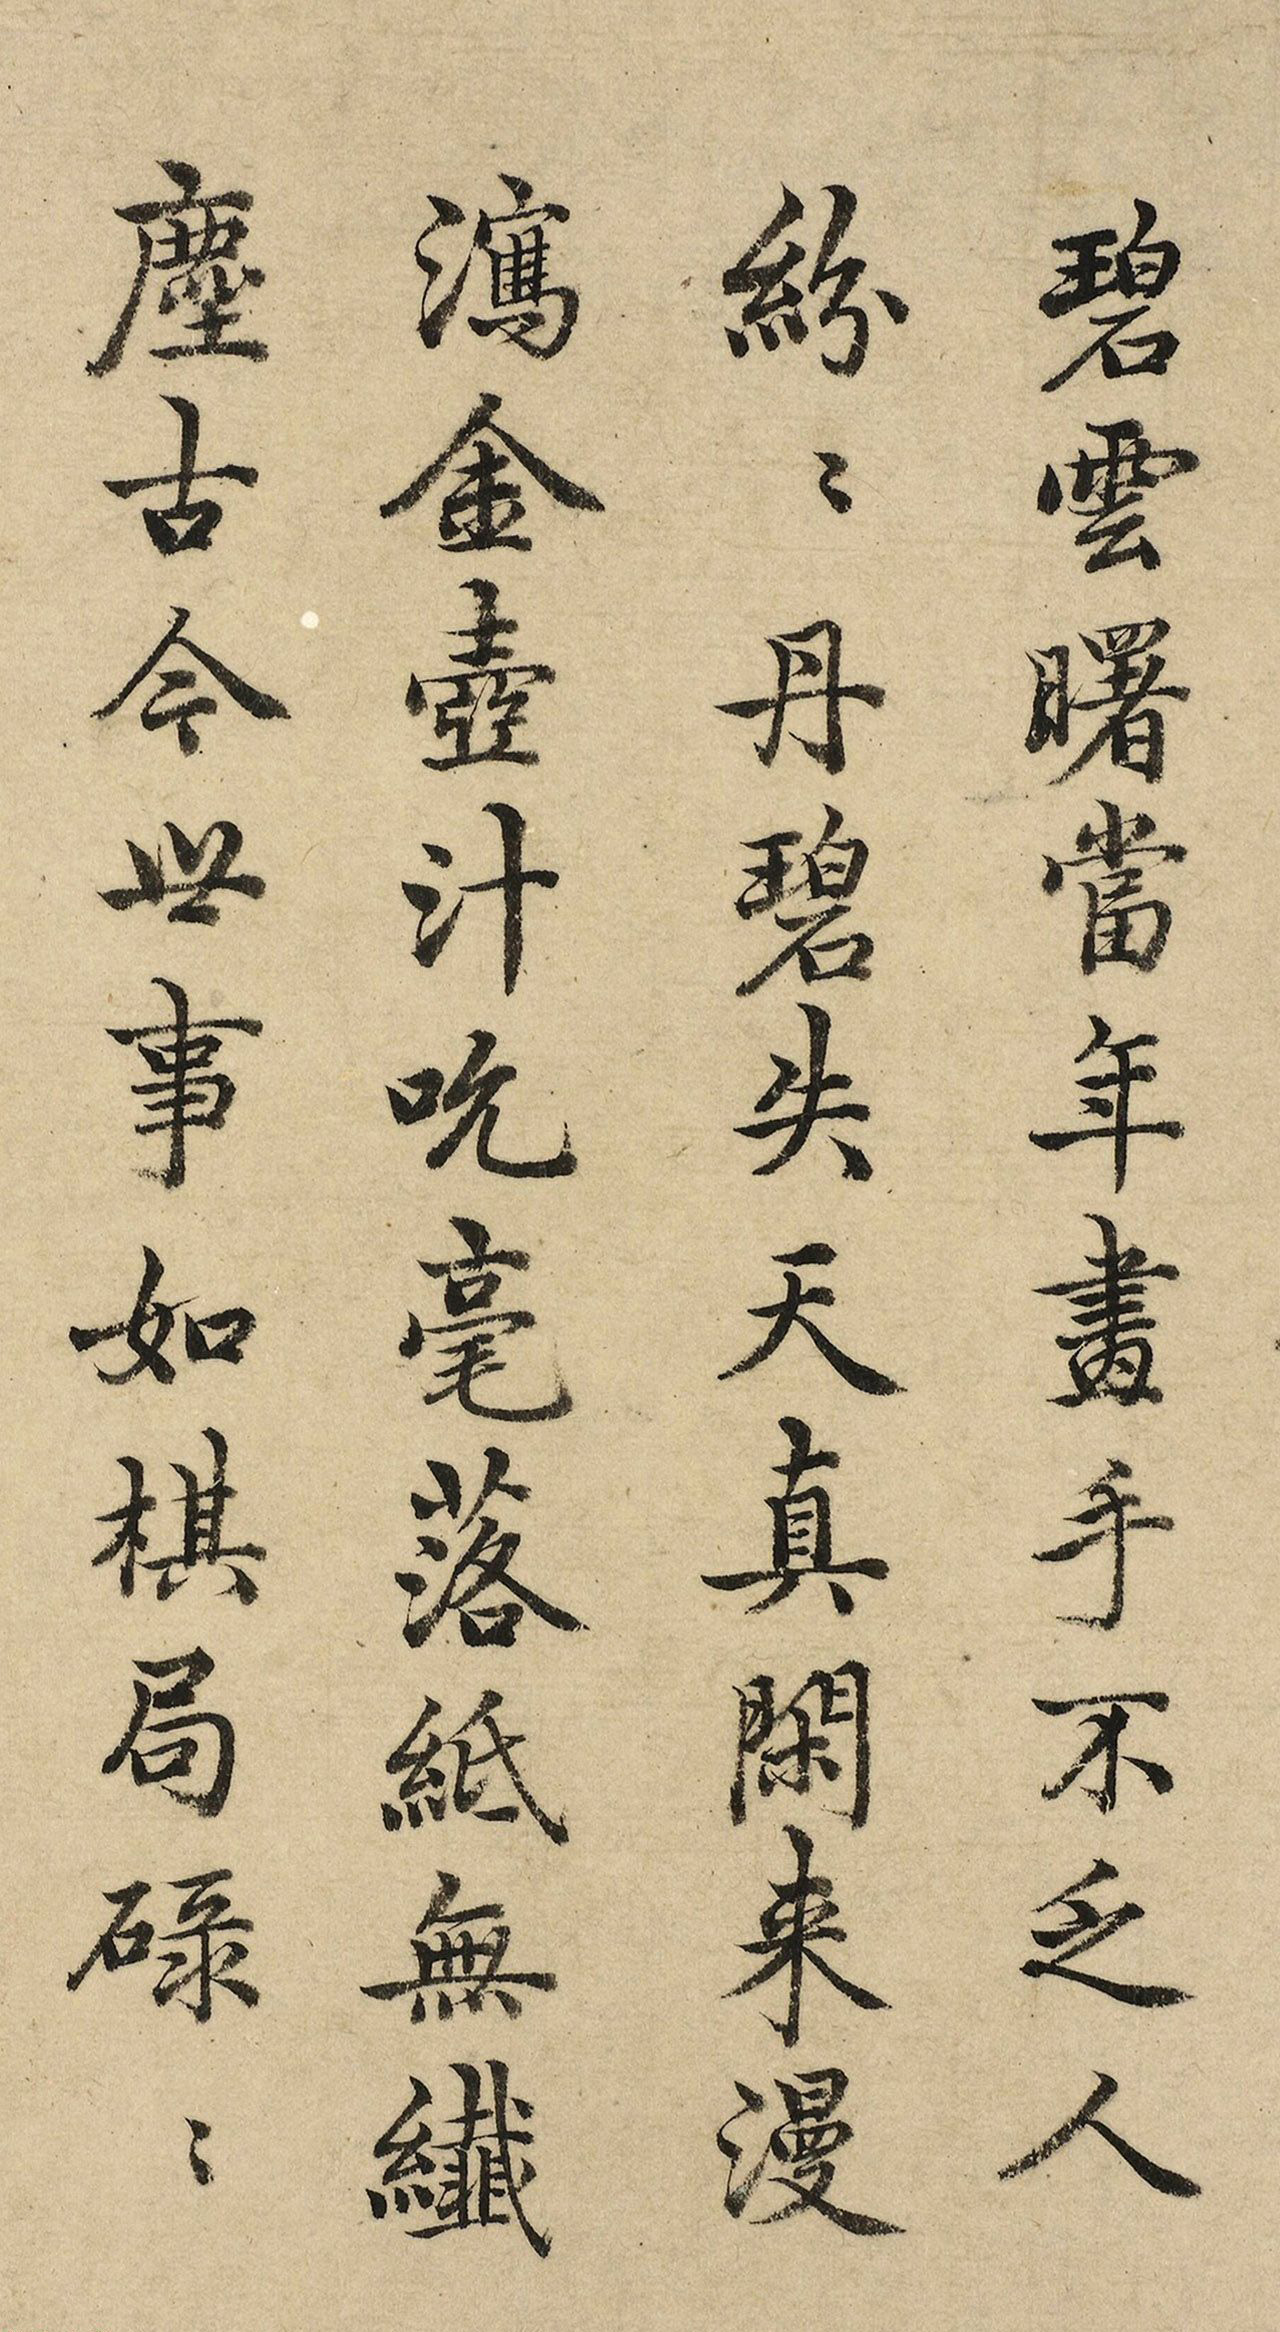 碧雲曙當年畫手不乏人
紛〻丹碧失天真閑来漫
瀉金壺汁吮毫落紙無纖
塵古今世事如棋局碌〻